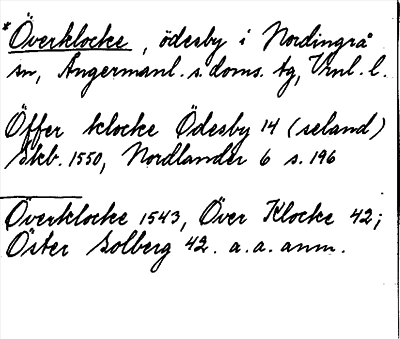 *Överklocke, ödesby i Nordingrå
sn, Ångermanl. s. doms. tg, Vnl. l.
Öffer klocke Ödesby 14 (seland)
Skb. 1550, Nordlander 6 s. 196
Överklocke 1543, Över Klocke 42;
Öster Solberg 42. a. a. anm.